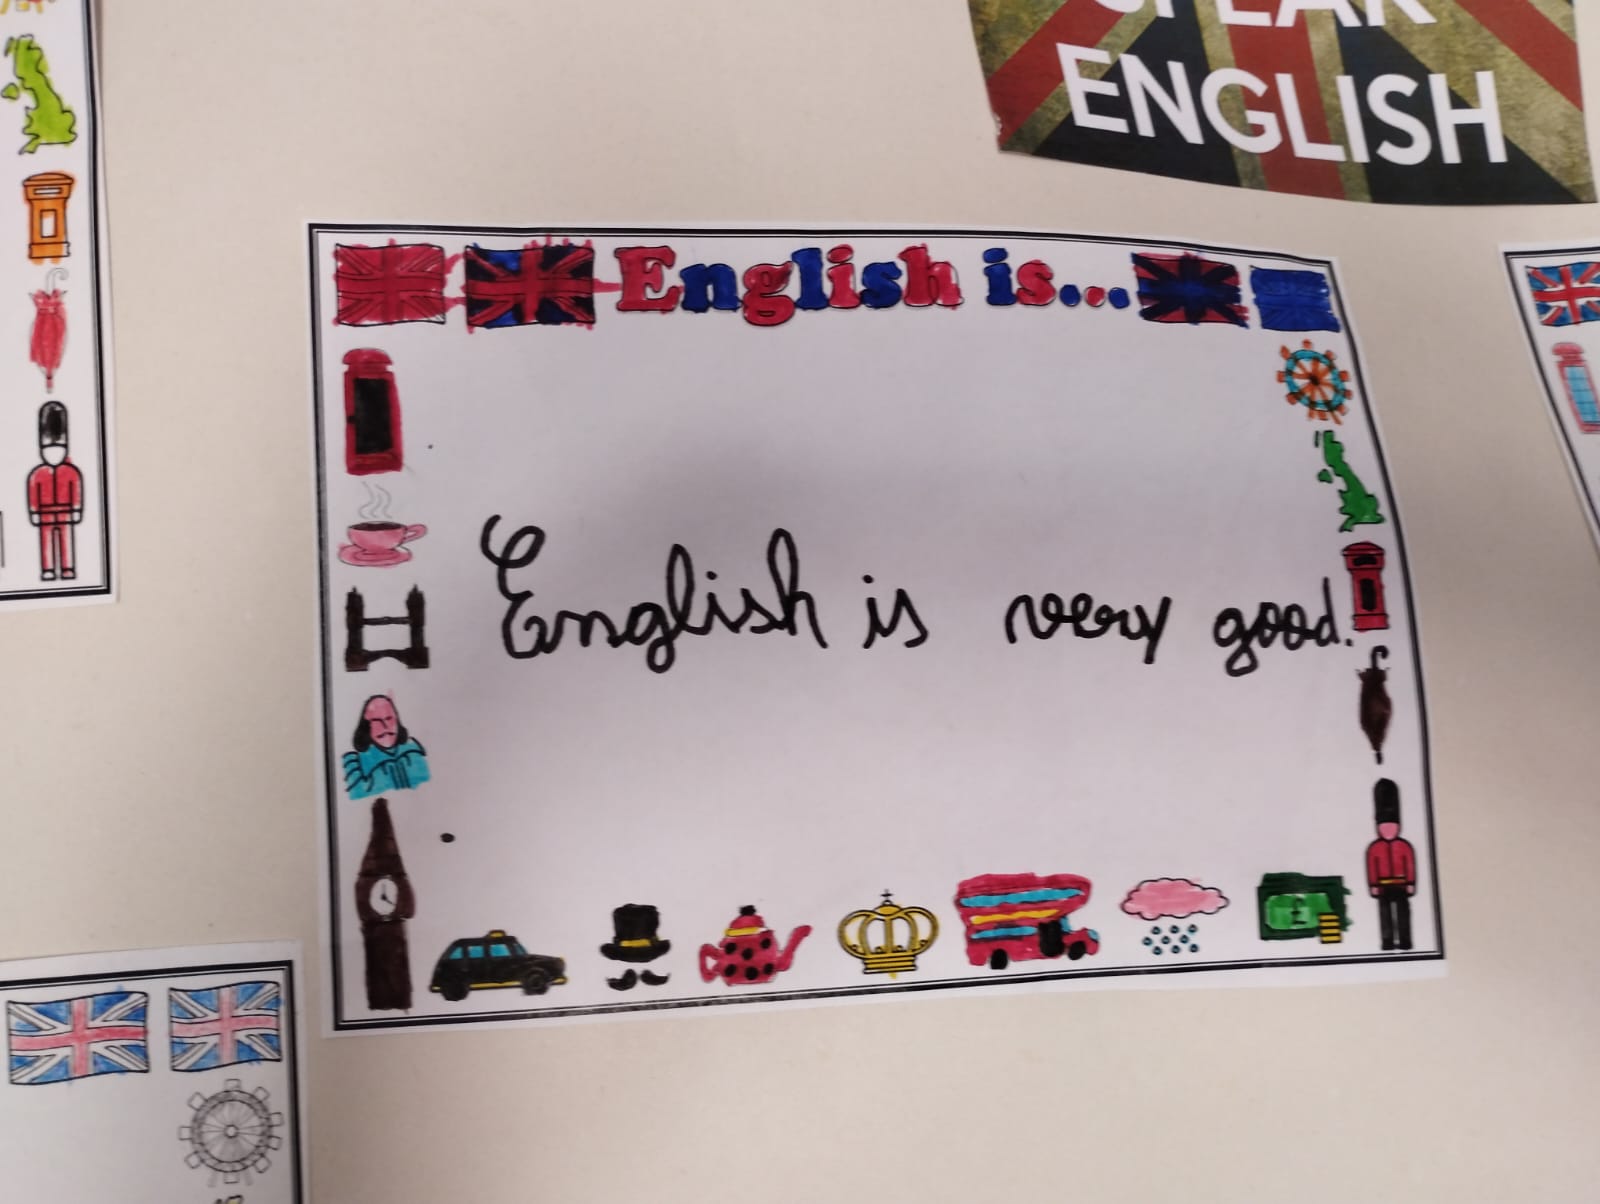 SPEAK
ENGLISH
English is...
English is very good.
£